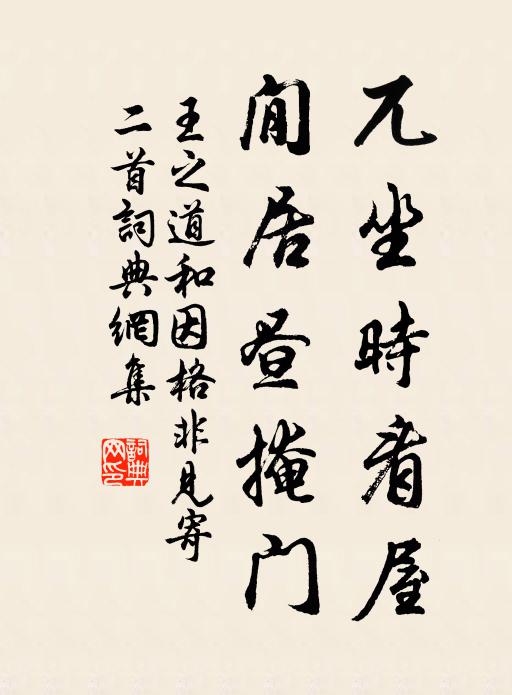 兀坐時看屋
閒居晝掩門
王之道和因格非見寄
二首詞典網集
詞典
网印